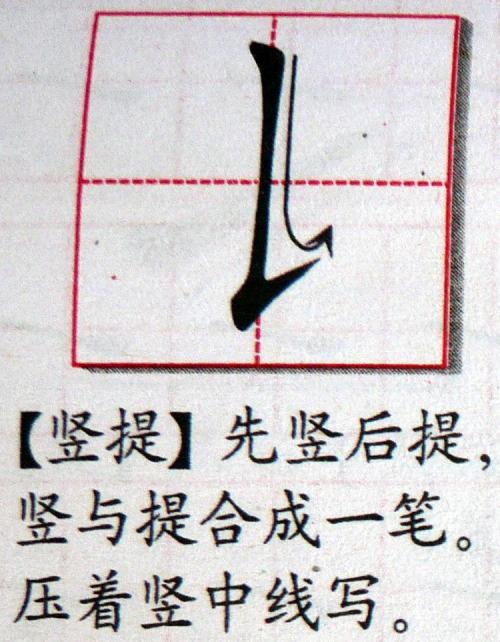 【竖提】先竖后提，
竖与提合成一笔。
压着竖中线写。